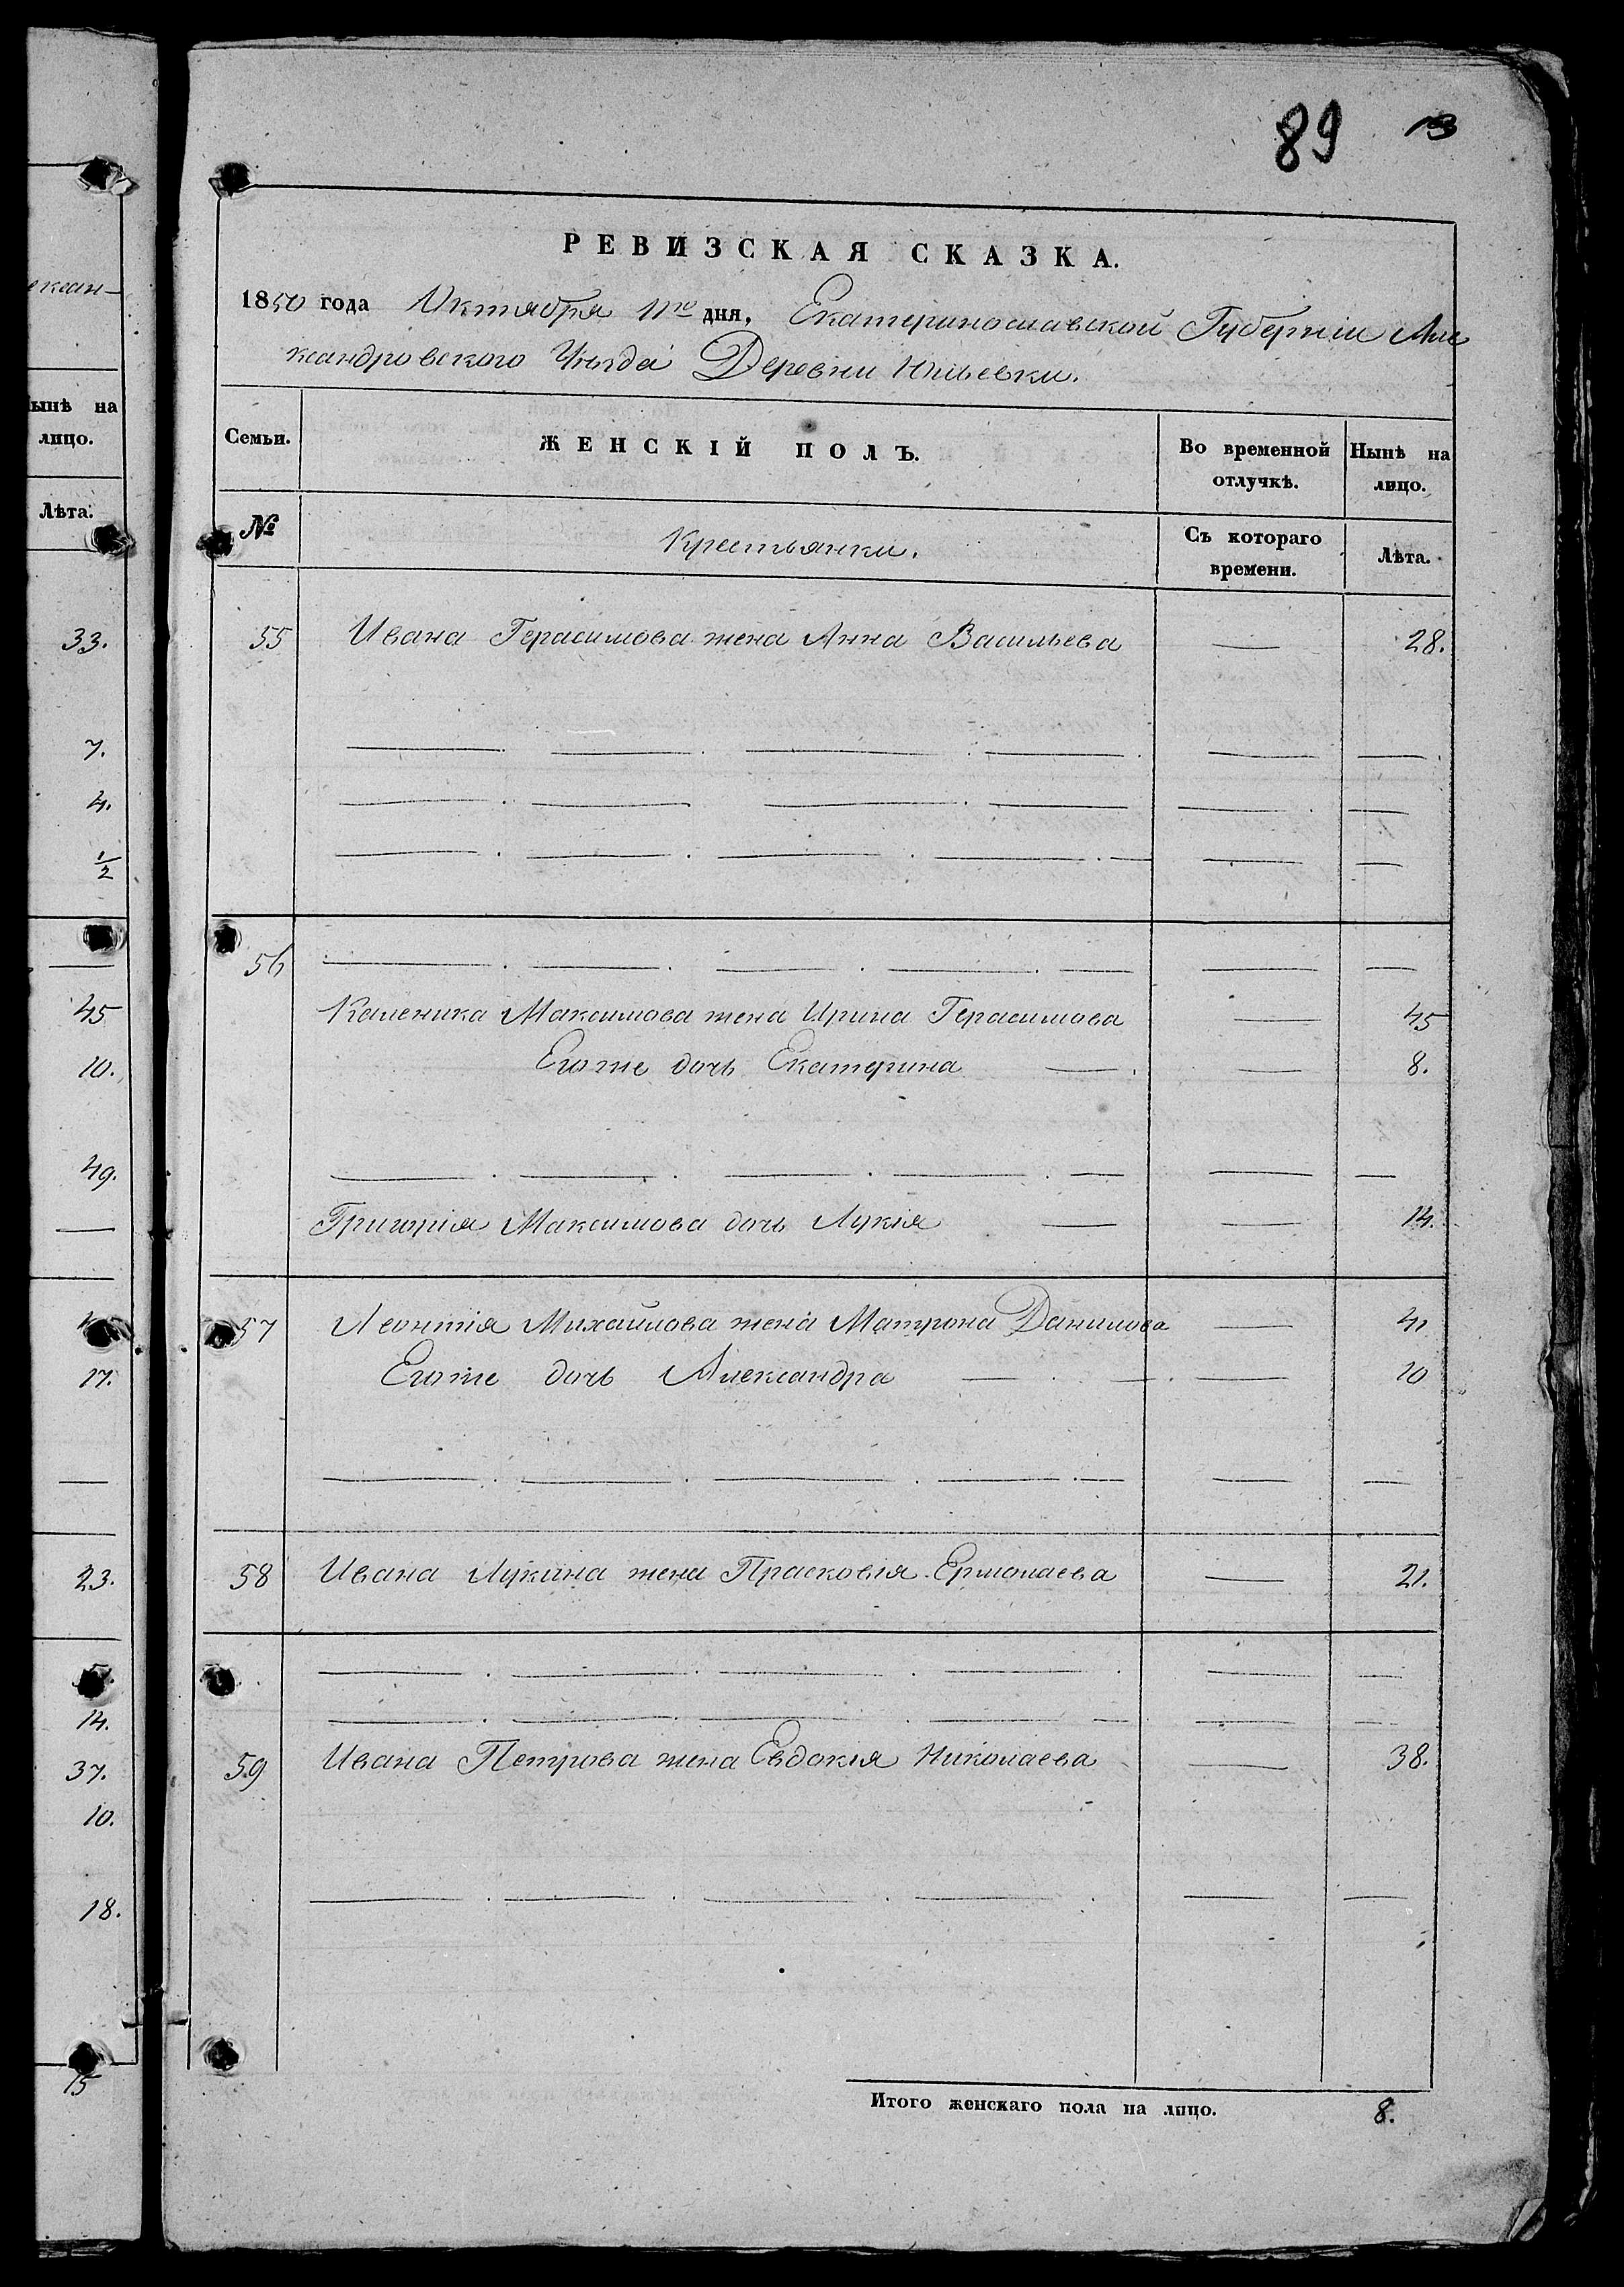 екоан-
ынѣ на
лицо.
Лѣта.
33.
7.
4.
1/2
45
10.
49.
17.
23.
14.
37.
10.
18.
15
89 13
РЕВИЗСКАЯ СКАЗКА.
1850 года Октября 11го дня, Екатеринославской Губерніи Але
ксандровского Уѣзда Деревни Юльевки.
Семьи. ЖЕНСКІЙ ПОЛЪ. Во временной отлучкѣ. Нынѣ на лицо.
№ Крестьянки. Съ котораго времени. Лѣта.
55 Ивана Герасимова жена Анна Васильева — 28.
56
Каленика Максимова жена Ирина Герасимова — 45
Егоже дочь Екатерина — — 8.
Григорія Максимова дочь Лукія — — 14.
57 Леонтія Михайлова жена Матрона Данилова — 41
Егоже дочь Александра — — — 10
58 Ивана Лукина жена Прасковія Ермолаева — 21.
59 Ивана Петрова жена Евдокія Николаева — 38.
Итого женскаго пола на лицо. 8.